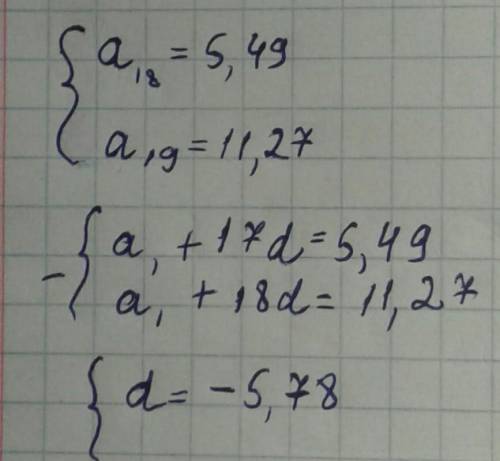 a₁₈ = 5,49
a₁₉ = 11,27
- a₁ + 17d = 5,49
a₁ + 18d = 11,27
d = -5,78